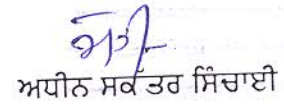 ਅਧੀਨ ਸਕੱਤਰ ਸਿੰਚਾਈ